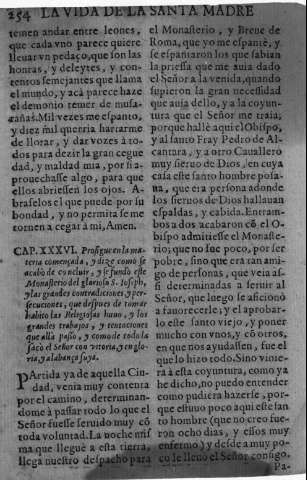 254 LA VIDA DE LA SANTA MADRE
temen andar entre leones,
que cada vno parece quiere
lleuar vn pedaço, que son las
honras, y deleytes, y con-
tentos semejantes que llama
el mundo, y acà parece haze
el demonio temer de musa-
rañas. Mil vezes me espanto,
y diez mil querria hartarme
de llorar, y dar vozes à to-
dos para dezir la gran cegue
dad, y maldad mia, por si a-
prouechasse algo, para que
ellos abriessen los ojos. A-
braselos el que puede por su
bondad, y no permita se me
tornen a cegar à mi, Amen.
CAP. XXXVI. Prosigue en la ma-
teria començada, y dize como se
acabò de concluir, y se fundò este
Monasterio del glorioso S. Ioseph,
y las grandes contradiciones, y per-
secuciones, que despues de tomar
habito las Religiosas huuo, y los
grandes trabajos, y tentaciones
que ella passò, y como de todo la
sacò el Señor con vitoria, y en glo-
ria, y alabança suya.
PArtida ya de aquella Ciu-
dad, venia muy contenta
por el camino, determinan-
dome à passar todo lo que el
Señor fuesse seruido muy cō
toda voluntad. La noche mis
ma que lleguè a esta tierra,
llega nuestro despacho para
el Monasterio, y Breue de
Roma, que yo me espantè, y
se espantaron los que sabian
la priessa que me auia dado
el Señor a la venida, quando
supieron la gran necessidad
que auia dello, y a la coyun-
tura que el Señor me traìa;
porque hallè aqui el Obispo,
y al santo Fray Pedro de Al-
cantara, y a otro Cauallero
muy sieruo de Dios, en cuya
casa este santo hombre posa-
ua, que era persona adonde
los sieruos de Dios hallauan
espaldas, y cabida. Entram-
bos a dos acabaron cō el O-
bispo admitiesse el Monaste-
rio; que no fue poco, por ser
pobre, sino que era tan ami-
go de personas, que veia as-
si determinadas a seruir al
Señor, que luego se aficionò
a fauorecerle; y el aprobar-
lo este santo viejo, y poner
mucho con vnos, y cō otros,
en que nos ayudassen, fue el
que lo hizo todo. Sino vinie-
ra à esta coyuntura, como ya
he dicho, no puedo entender
como pudiera hazerse, por-
que estuuo poco aqui este san
to hombre (que no creo fue-
ron ocho dias, y essos muy
enfermo) y desde a muy po-
co le lleuò el Señor consigo.
Pa-